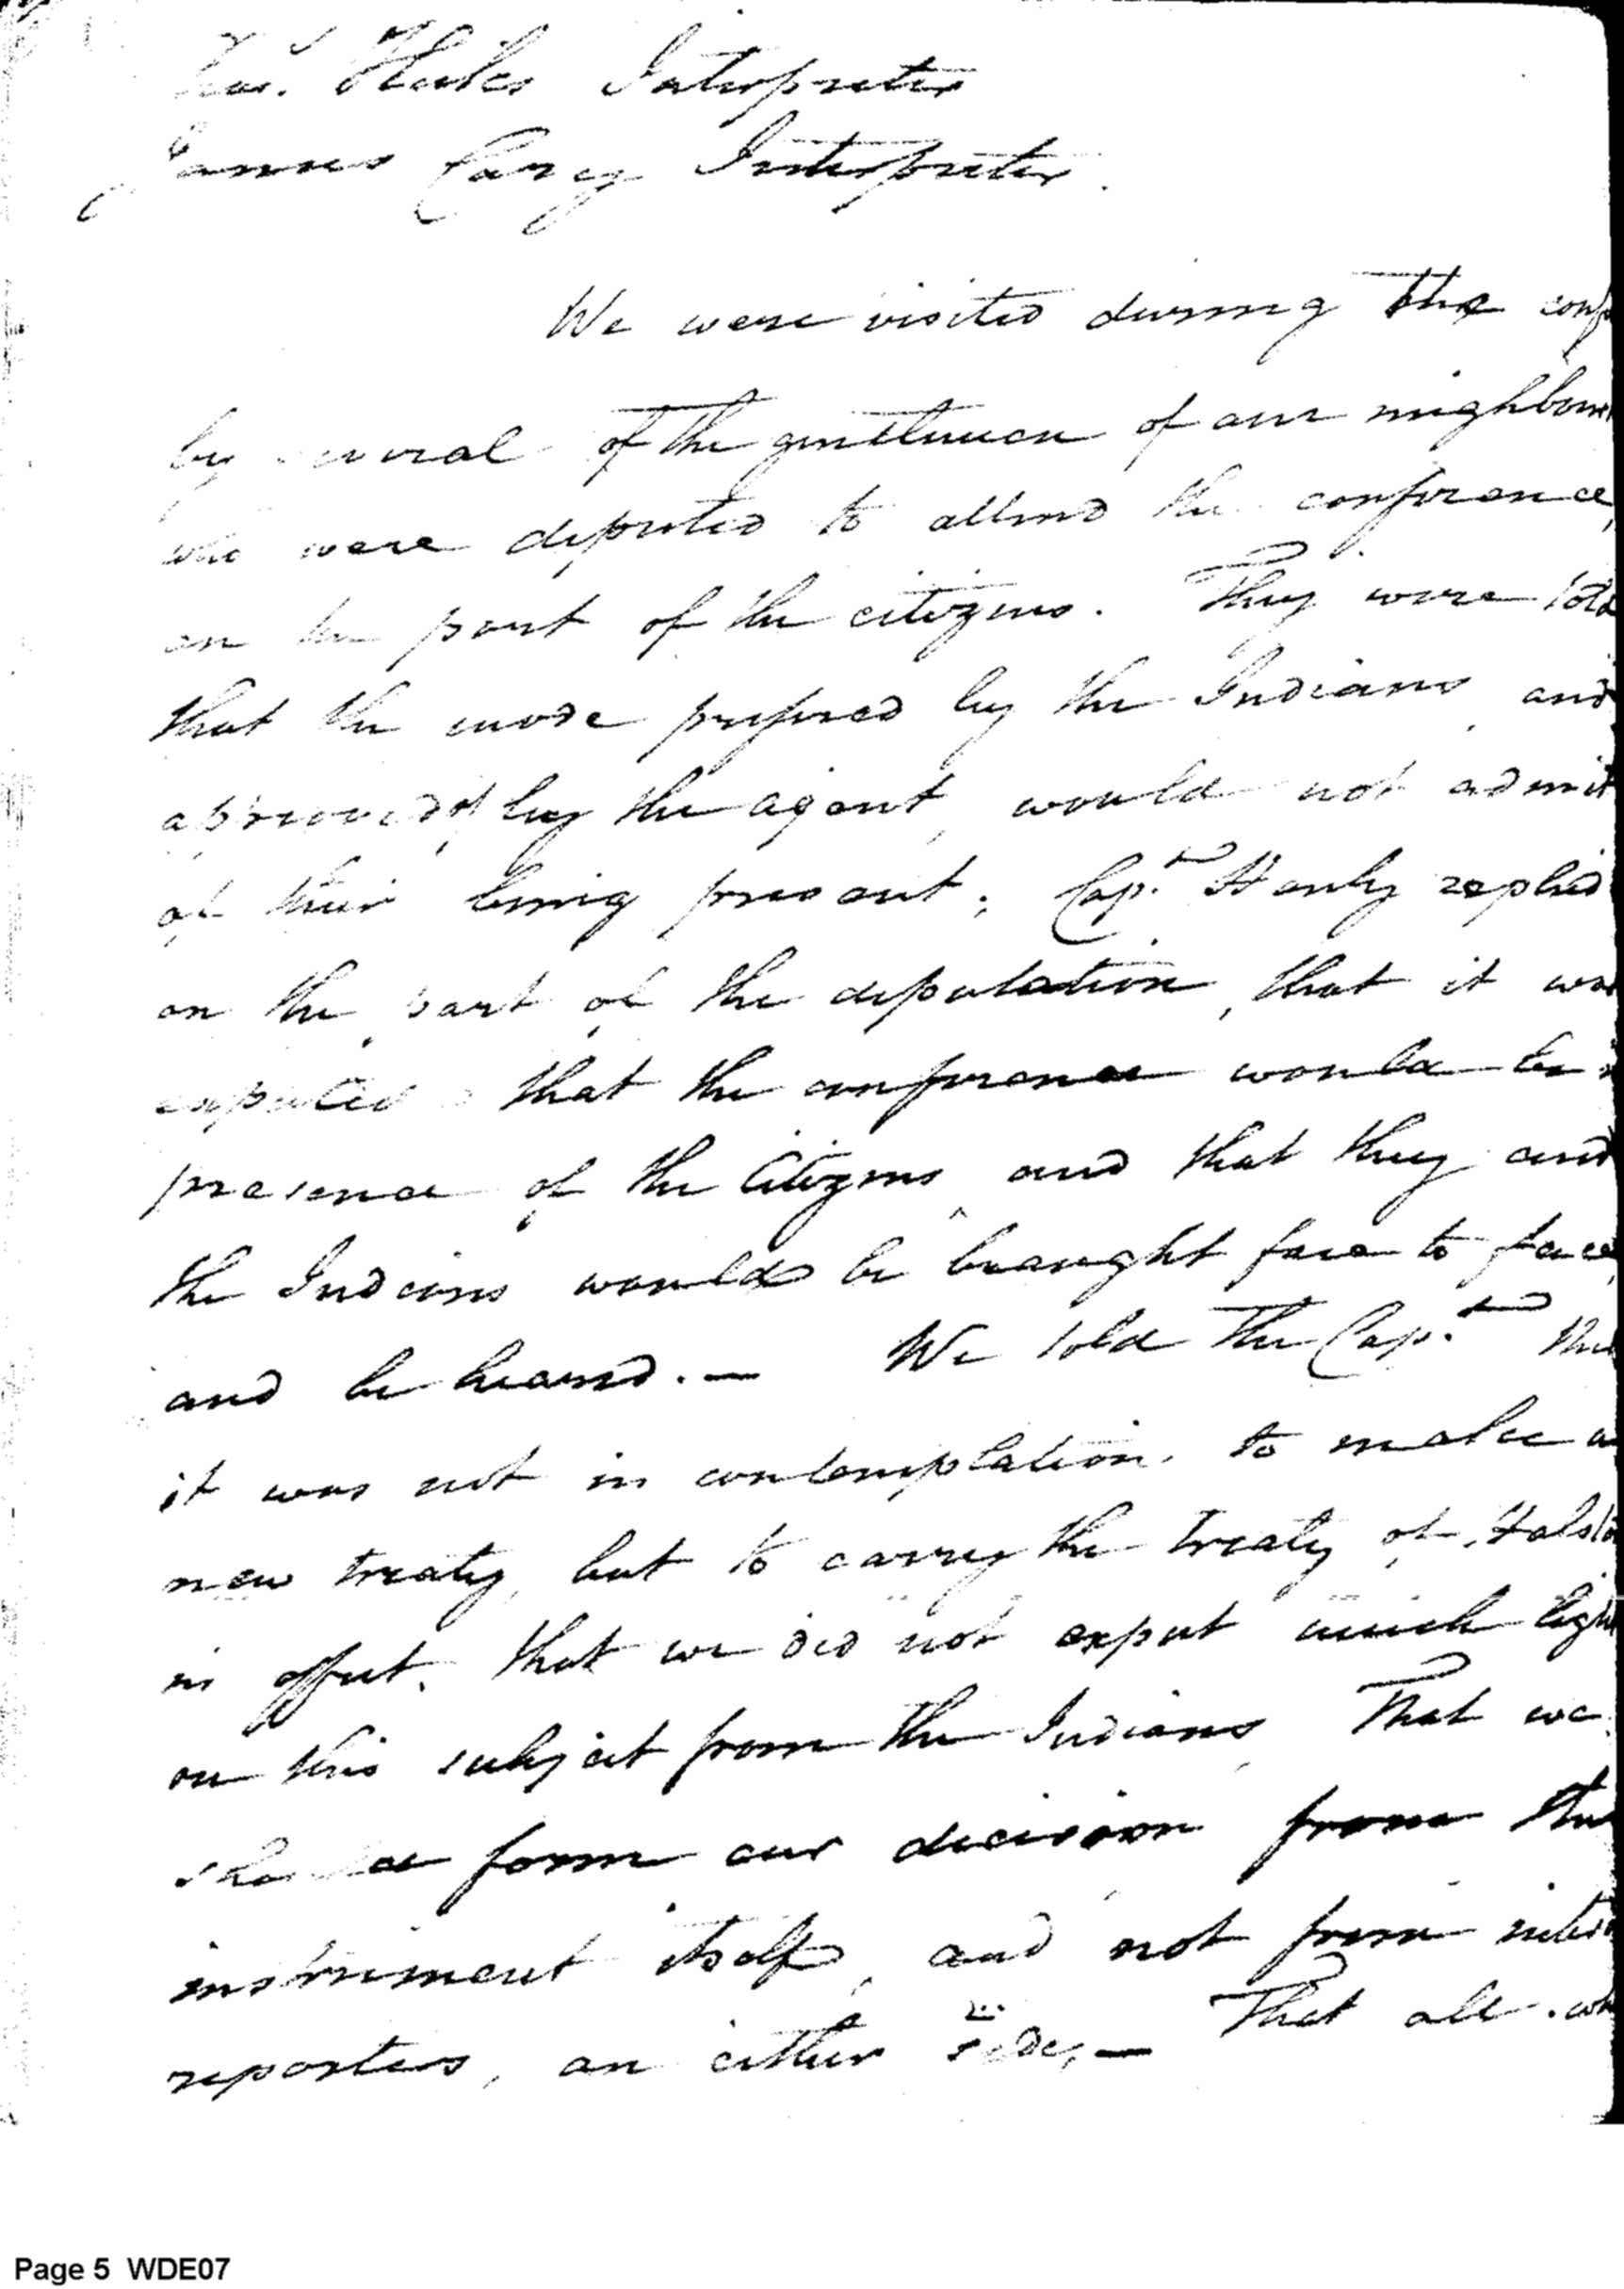 Interpreter
James Carey Interpreter.
We were visited during the conf
by several of the gentlemen of our neighbour
who were deputed to attend the conference,
on the part of the citizens. They were told
that the mode prefered by the Indians, and
approved of by the agent, would not admit
of their being present; Capt. Hanly replied
on the part of the deputation, that it was
expected that the conference would be
presence of the Citizens, and that they and
the Indians would be brought face to face,
and be heard. — We told the Capt.
it was not in contemplation, to make a
new treaty, but to carry the treaty of Holsto
in effect. that we did not expect much ligh
on this subject from the Indians, That we
should form our decision from the
instrument itself, and not from
reporters, on either side, — That all
Page 5 WDE07